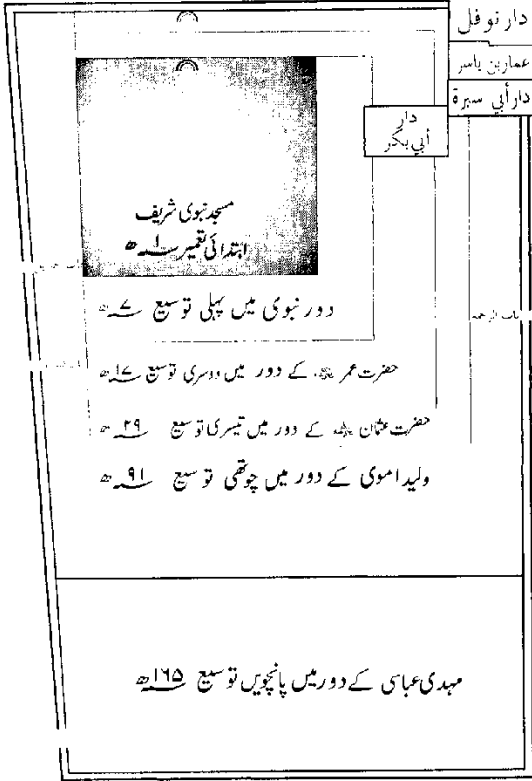 دار نوفل
عمار بن ياسر
دار أبي سبرة
دار
أبي بكر
مسجد نبوی شریف
ابتدائی تعمیر ۱ھ
دور نبوی میں پہلی توسیع ۷ھ
باب الرحمہ
حضرت عمر رضی اللہ عنہ کے دور میں دوسری توسیع ۱۷ھ
حضرت عثمان رضی اللہ عنہ کے دور میں تیسری توسیع ۲۹ھ
ولید اموی کے دور میں چوتھی توسیع ۹۱ھ
مہدی عباسی کے دور میں پانچویں توسیع ۱۶۵ھ